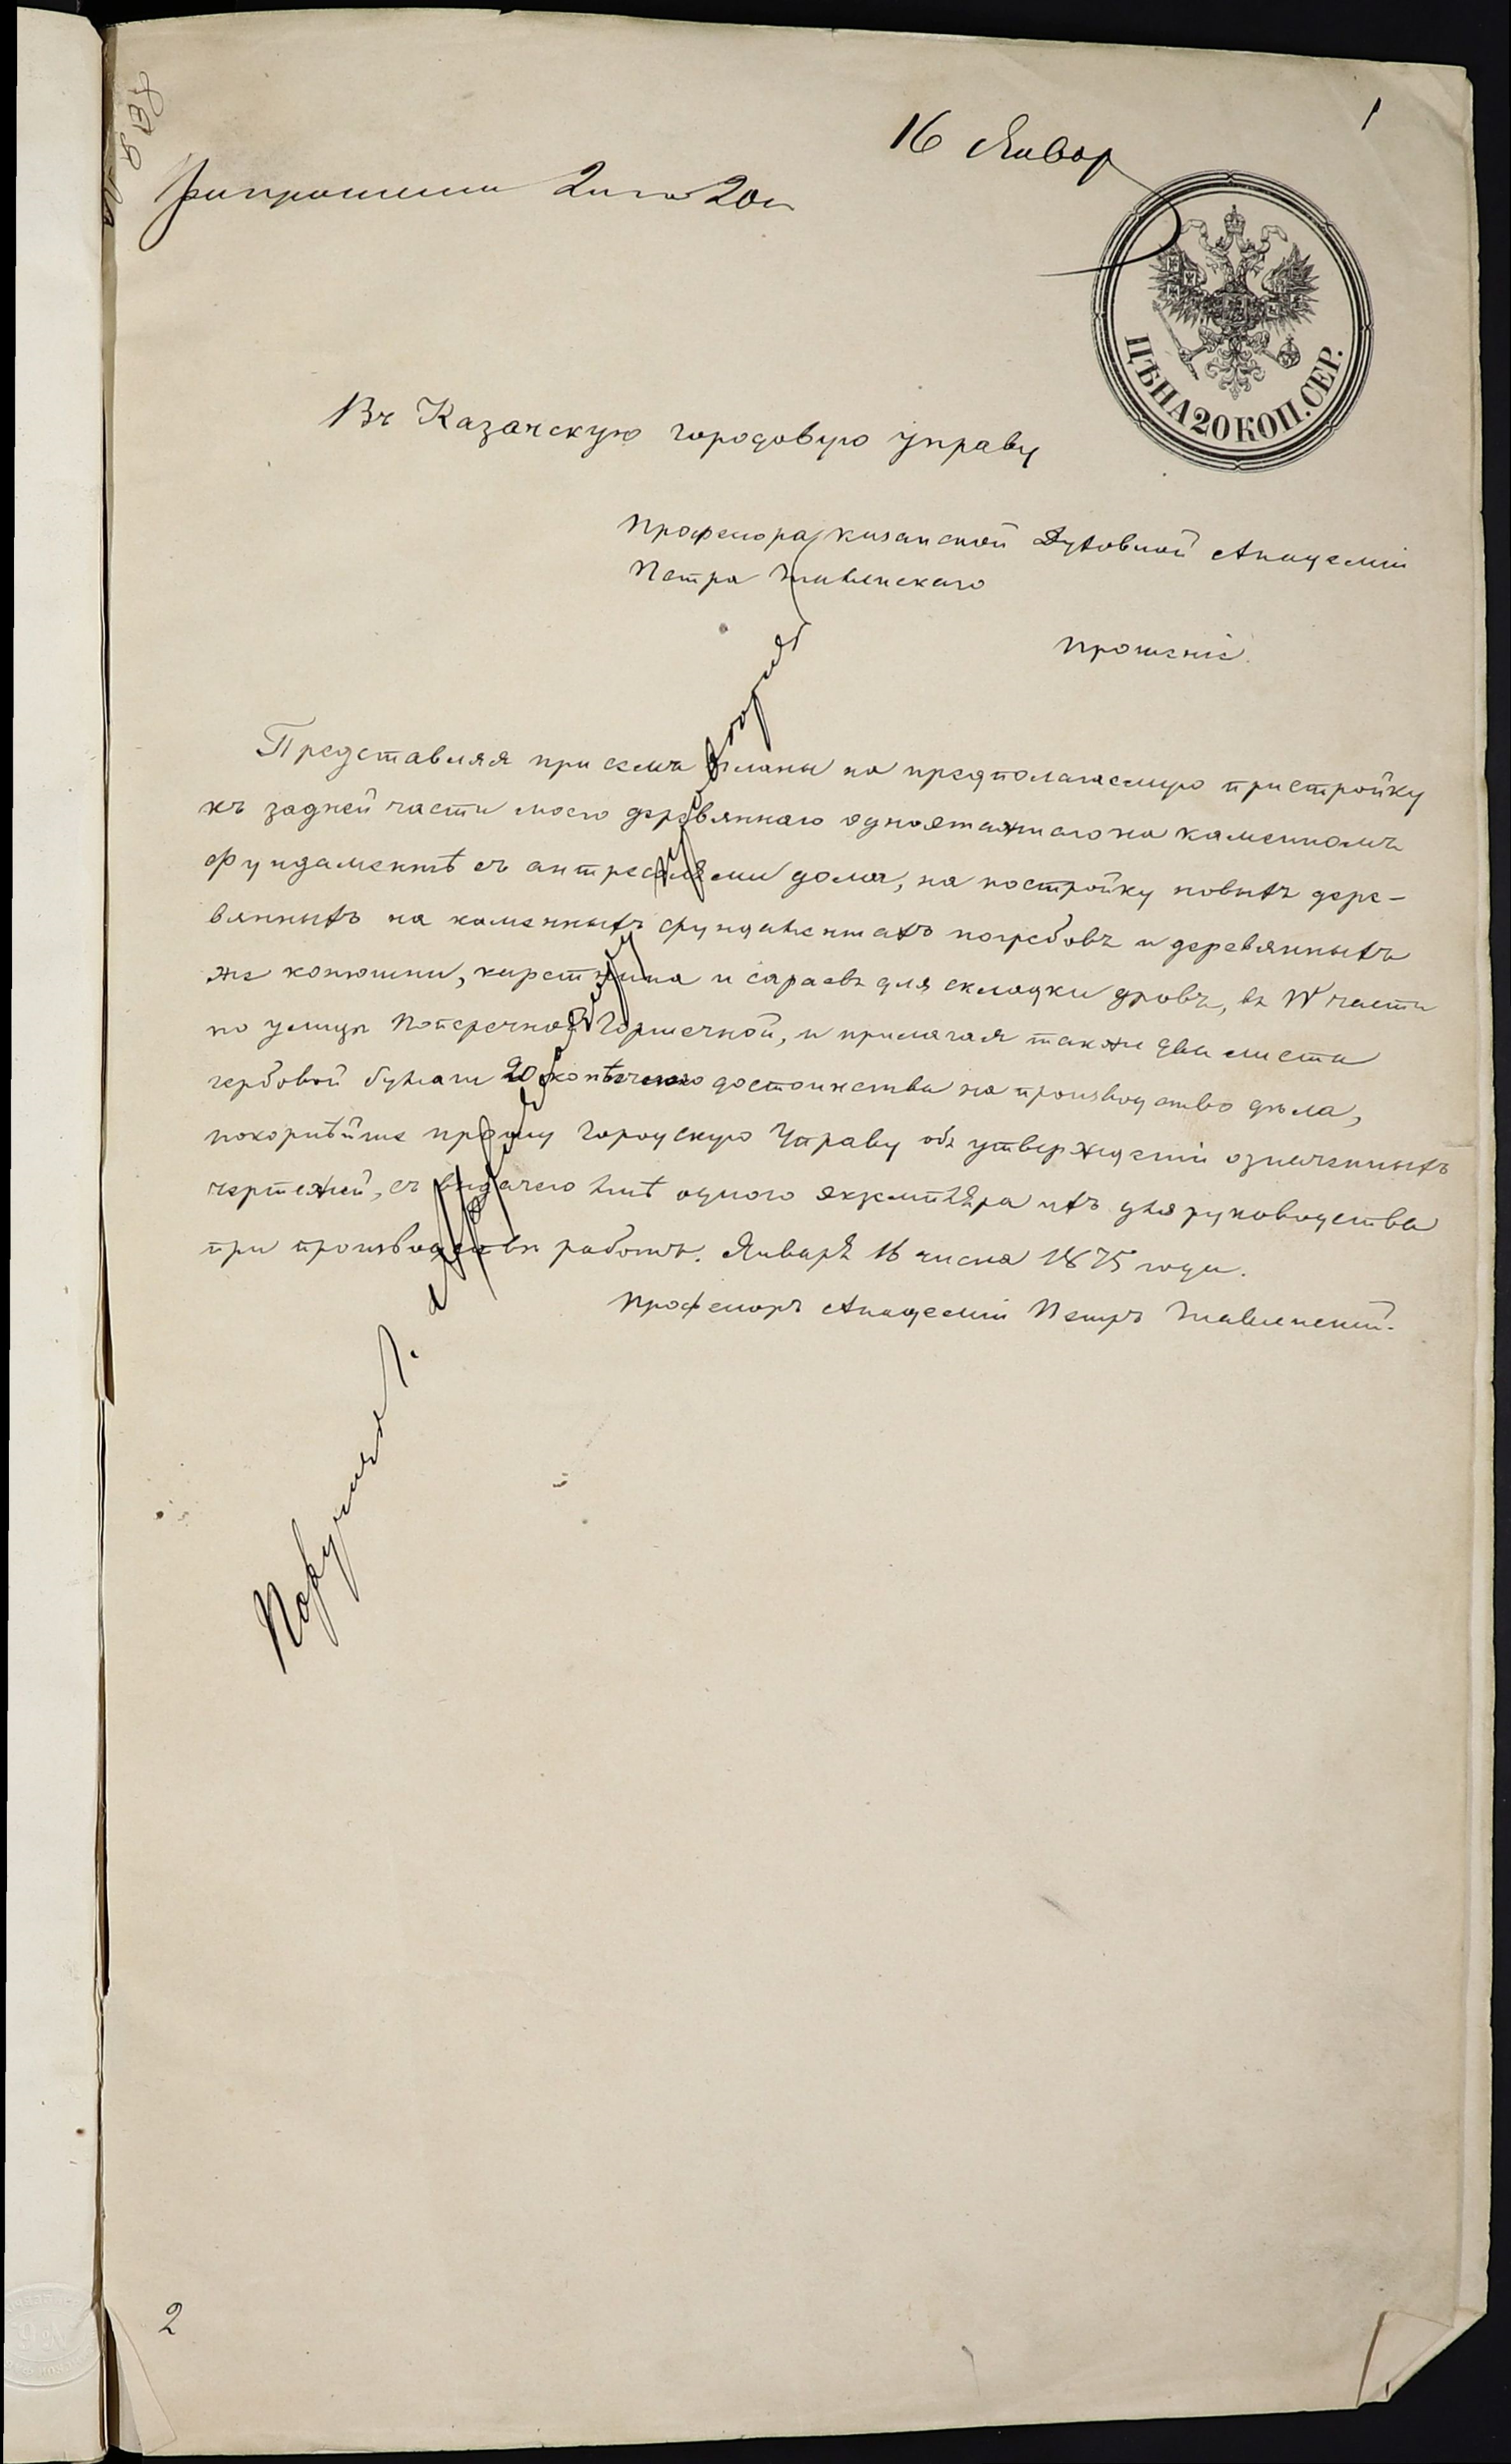 1
16 Январ
При прошении 2 листа 20 к
ЦѢНА 20 КОП. СЕР.
Въ Казанскую городовую управу
Професора Казанской Духовной Академіи
Петра
Прошеніе.
Представляя при семъ планы на предполагаемую пристройку
къ задней части моего деревяннаго одноэтажнаго на каменномъ
фундаментѣ съ антресолями дома, на постройку новыхъ дере-
вянныхъ на каменныхъ фундаментахъ погребовъ и деревянныхъ
же конюшни, каретника и сараевъ для складки дровъ, въ IV части
по улицѣ Поперечной Горшечной, и прилагая также два листа
гербовой бумаги 20 копѣечнаго достоинства на производство дѣла,
покорнѣйше прошу Городскую Управу объ утвержденіи означенныхъ
чертежей, съ выдачею мнѣ одного экземпляра ихъ для руководства
при производствѣ работъ. Января 16 числа 1875 года.
Професоръ Академіи Петръ
Поручить г.
2